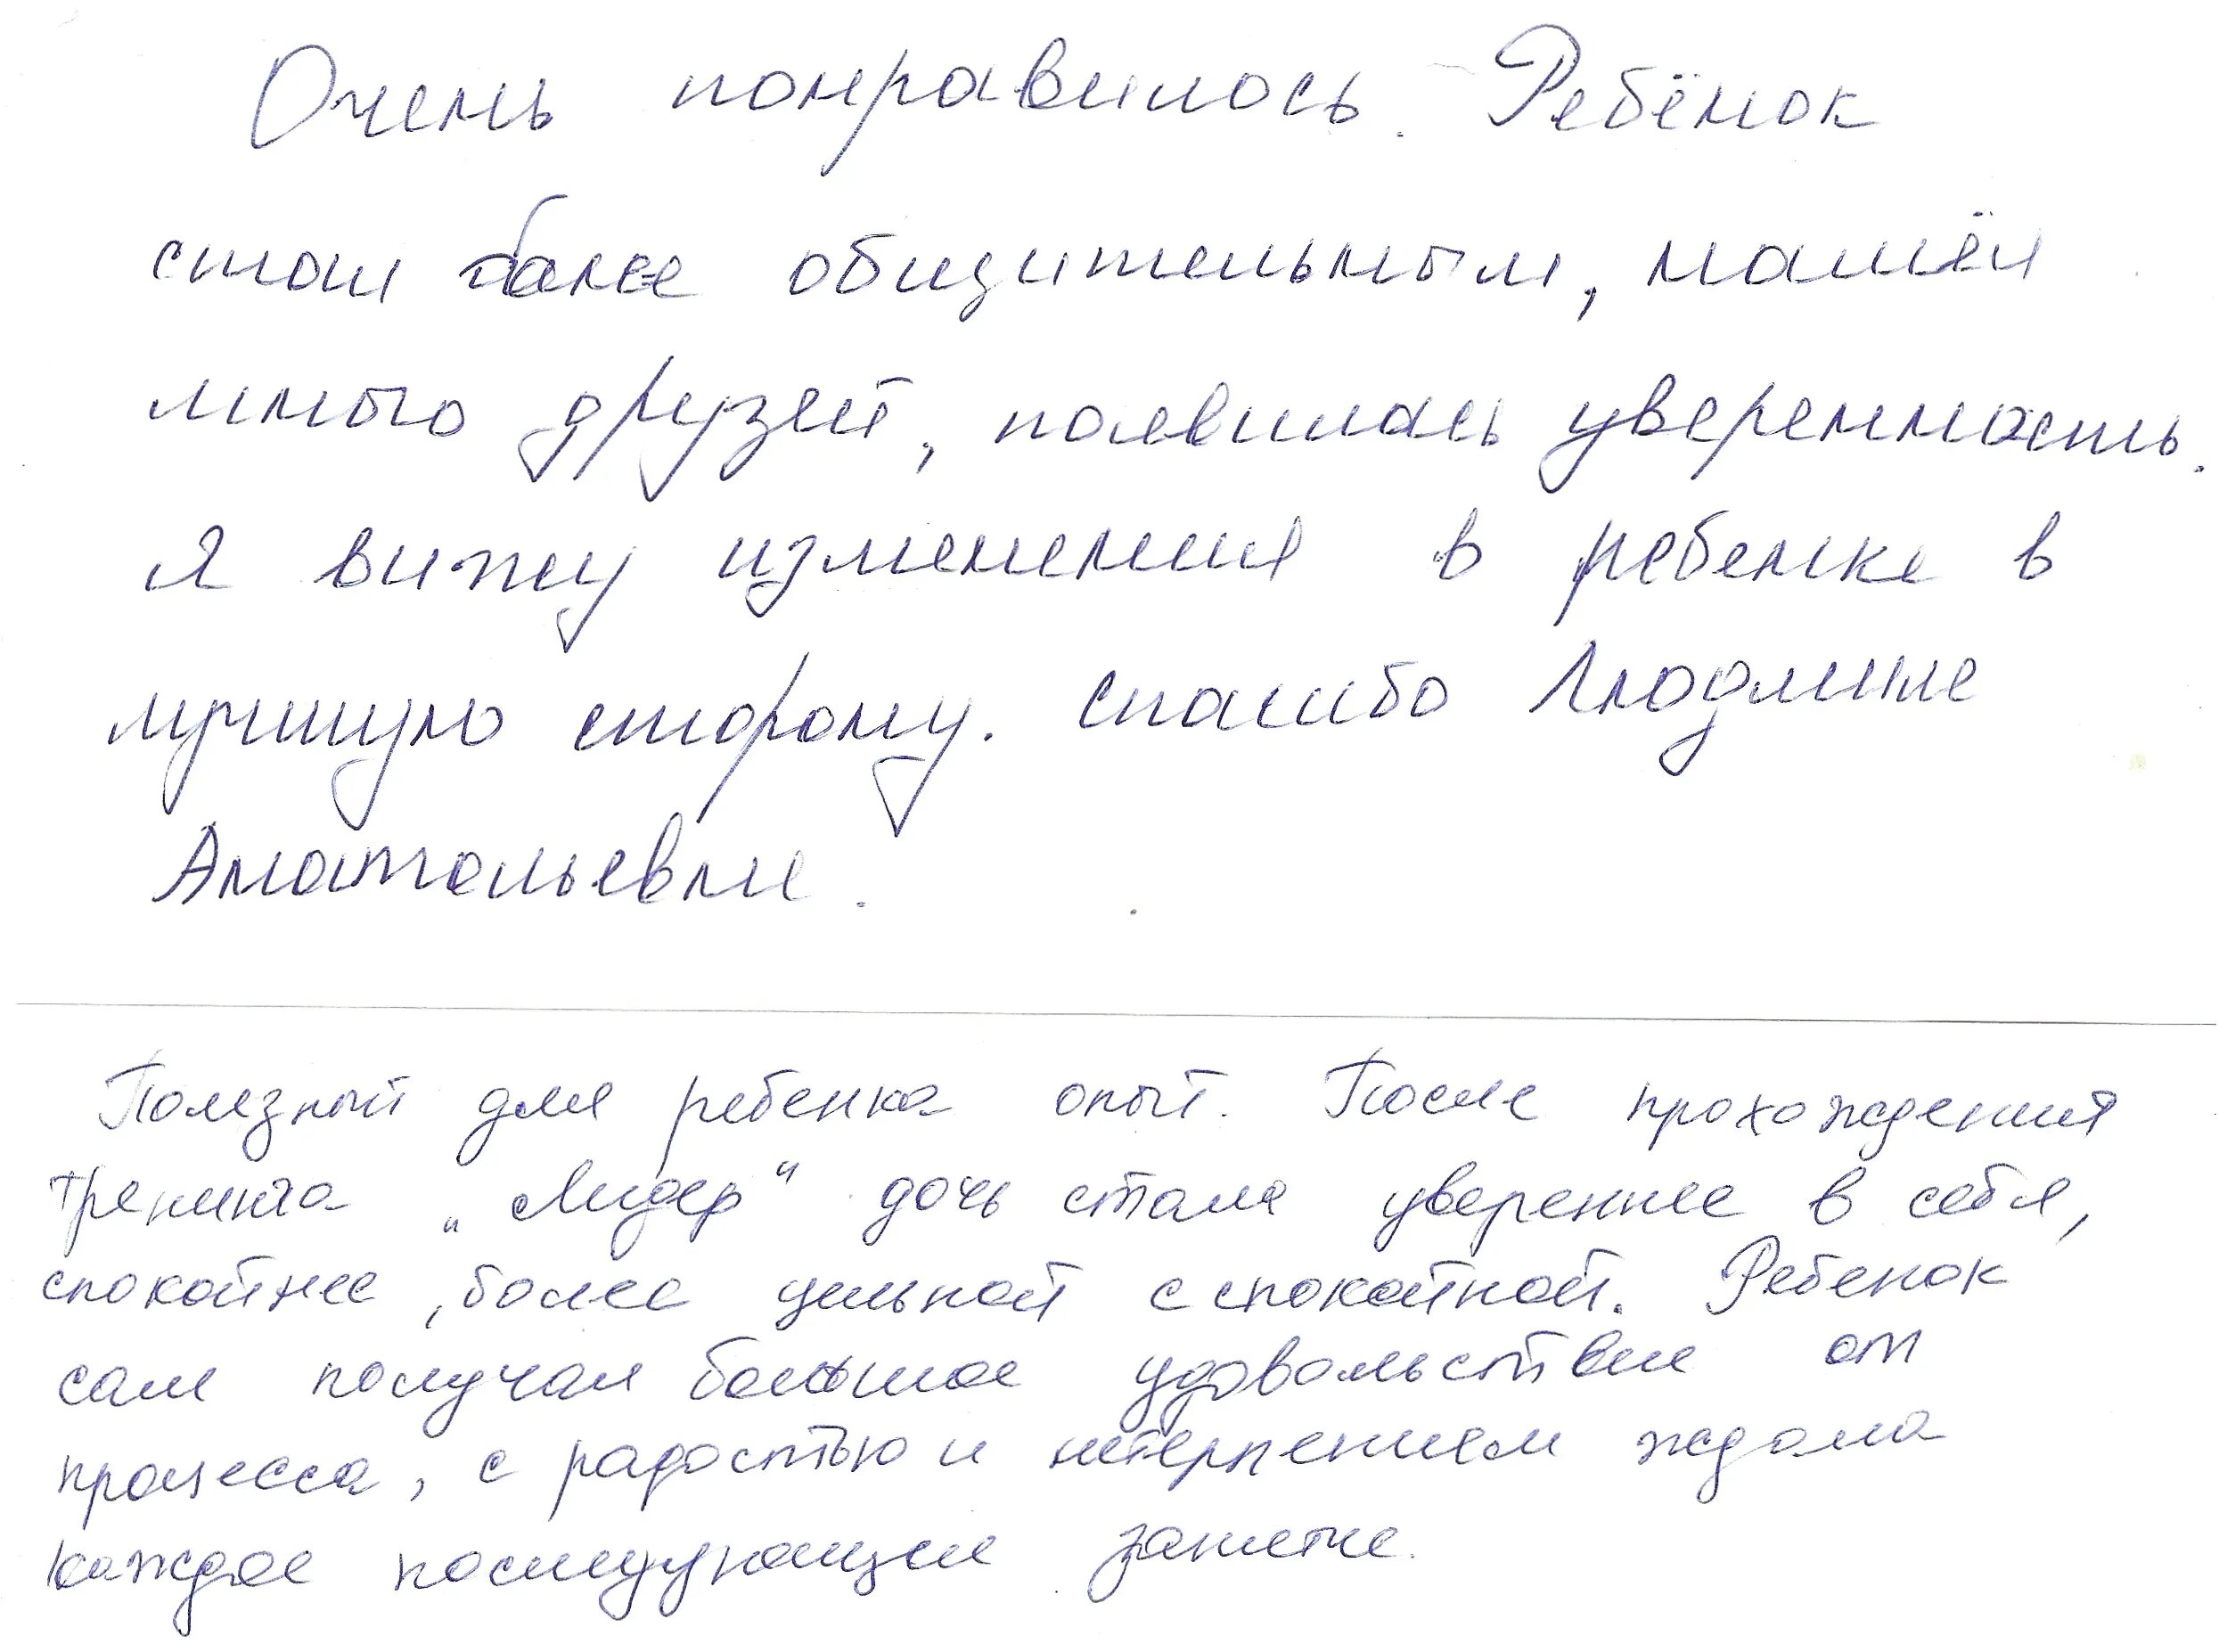 Очень понравилось. Ребёнок
стал более общительным, нашёл
много друзей, появилась уверенность.
я вижу изменения в ребенке в
лучшую сторону. спасибо Людмиле
Анатольевне.
Полезный для ребенка опыт. После прохождения
тренинга „Лидер“ дочь стала увереннее в себя,
спокойнее, более цельной с спокойной. Ребенок
сам получал большое удовольствие от
процесса, с радостью и нетерпением ждала
каждое последующее занятие.